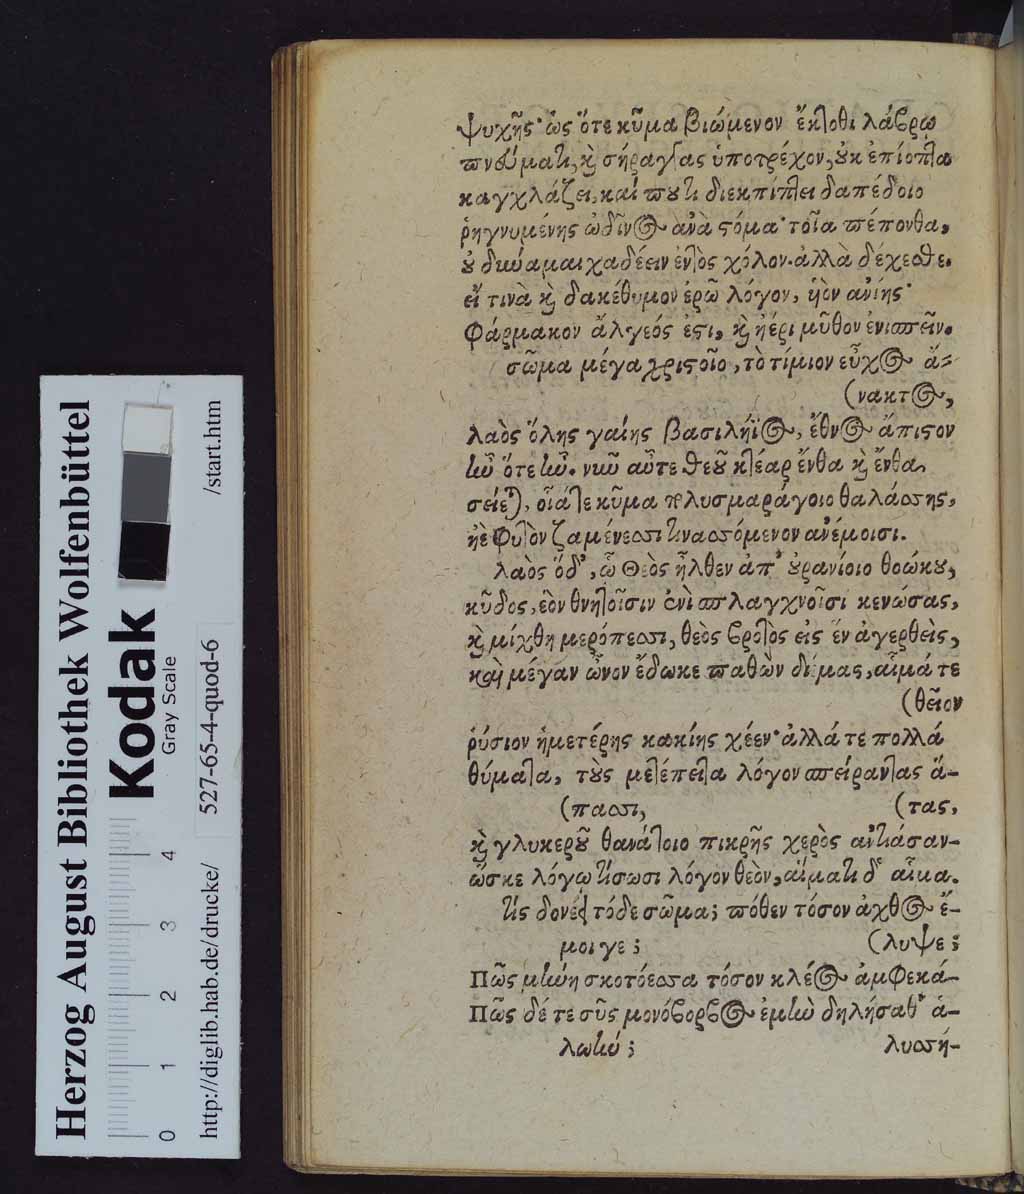 ψυχῆς· ὡς ὅτε κῦμα βιώμενον ἔκτοθι λάβρῳ
πνεύματι, καὶ σήραγγας ὑποτρέχον, οὐκ ἐπίοπτα
καγχλάζει, καί που τι διεκπίπτει δαπέδοιο
ῥηγνυμένης ὠδῖνος ἀνὰ στόμα· τοῖα πέπονθα,
οὐ δυνάμαι χαδέειν ἐντὸς χόλον. ἀλλὰ δέχεσθε.
εἴ τινὰ καὶ δακέθυμον ἐρῶ λόγον, ἡὸν ἀνίης·
φάρμακον ἄλγεός ἐστι, καὶ ἠέρι μῦθον ἐνισπεῖν.
σῶμα μέγα χριστοῖο, τὸ τίμιον εὖχος ἄ-
(νακτος,
λαὸς ὅλης γαίης βασιλήϊος, ἔθνος ἄπιστον
ἦν ὅτε ἦν. νῦν αὖτε θεοῦ κτέαρ ἔνθα καὶ ἔνθα
σείεται, οἷά τε κῦμα πολυσμαράγοιο θαλάσσης,
ἠὲ φυτὸν ζαμένεσσι τινασσόμενον ἀνέμοισι.
λαὸς ὅδ', ᾧ Θεὸς ἦλθεν ἀπ' οὐρανίοιο θοώκου,
κῦδος, ἑὸν θνητοῖσιν ἐνὶ σπλαγχνοῖσι κενώσας,
καὶ μίχθη μερόπεσσι, θεὸς βροτὸς εἰς ἓν ἀγερθεὶς,
καὶ μέγαν ὦνον ἔδωκε παθὼν δέμας, αἷμά τε
(θεῖον
ῥύσιον ἡμετέρης κακίης χέεν· ἀλλά τε πολλά
θύματα, τοὺς μετέπειτα λόγον σπείραντας ἅ-
(πασσι, (τας,
καὶ γλυκεροῦ θανάτοιο πικρῆς χερὸς ἀντιάσαν-
ὥσκε λόγῳ τίσωσι λόγον θεὸν, αἵματι δ' αἷμα.
τίς δονέει τόδε σῶμα; πόθεν τόσον ἄχθος ἔ-
μοιγε; (λυψε;
Πῶς μήνη σκοτόεσσα τόσον κλέος ἀμφεκά-
Πῶς δέ τε σῦς μονόβορβος ἐμὴν δηλήσαθ' ἁ-
λωήν; λυσσή-
Herzog August Bibliothek Wolfenbüttel
Kodak
Gray Scale
0 1 2 3 4
http://diglib.hab.de/drucke/ 527-65-4-quod-6 /start.htm